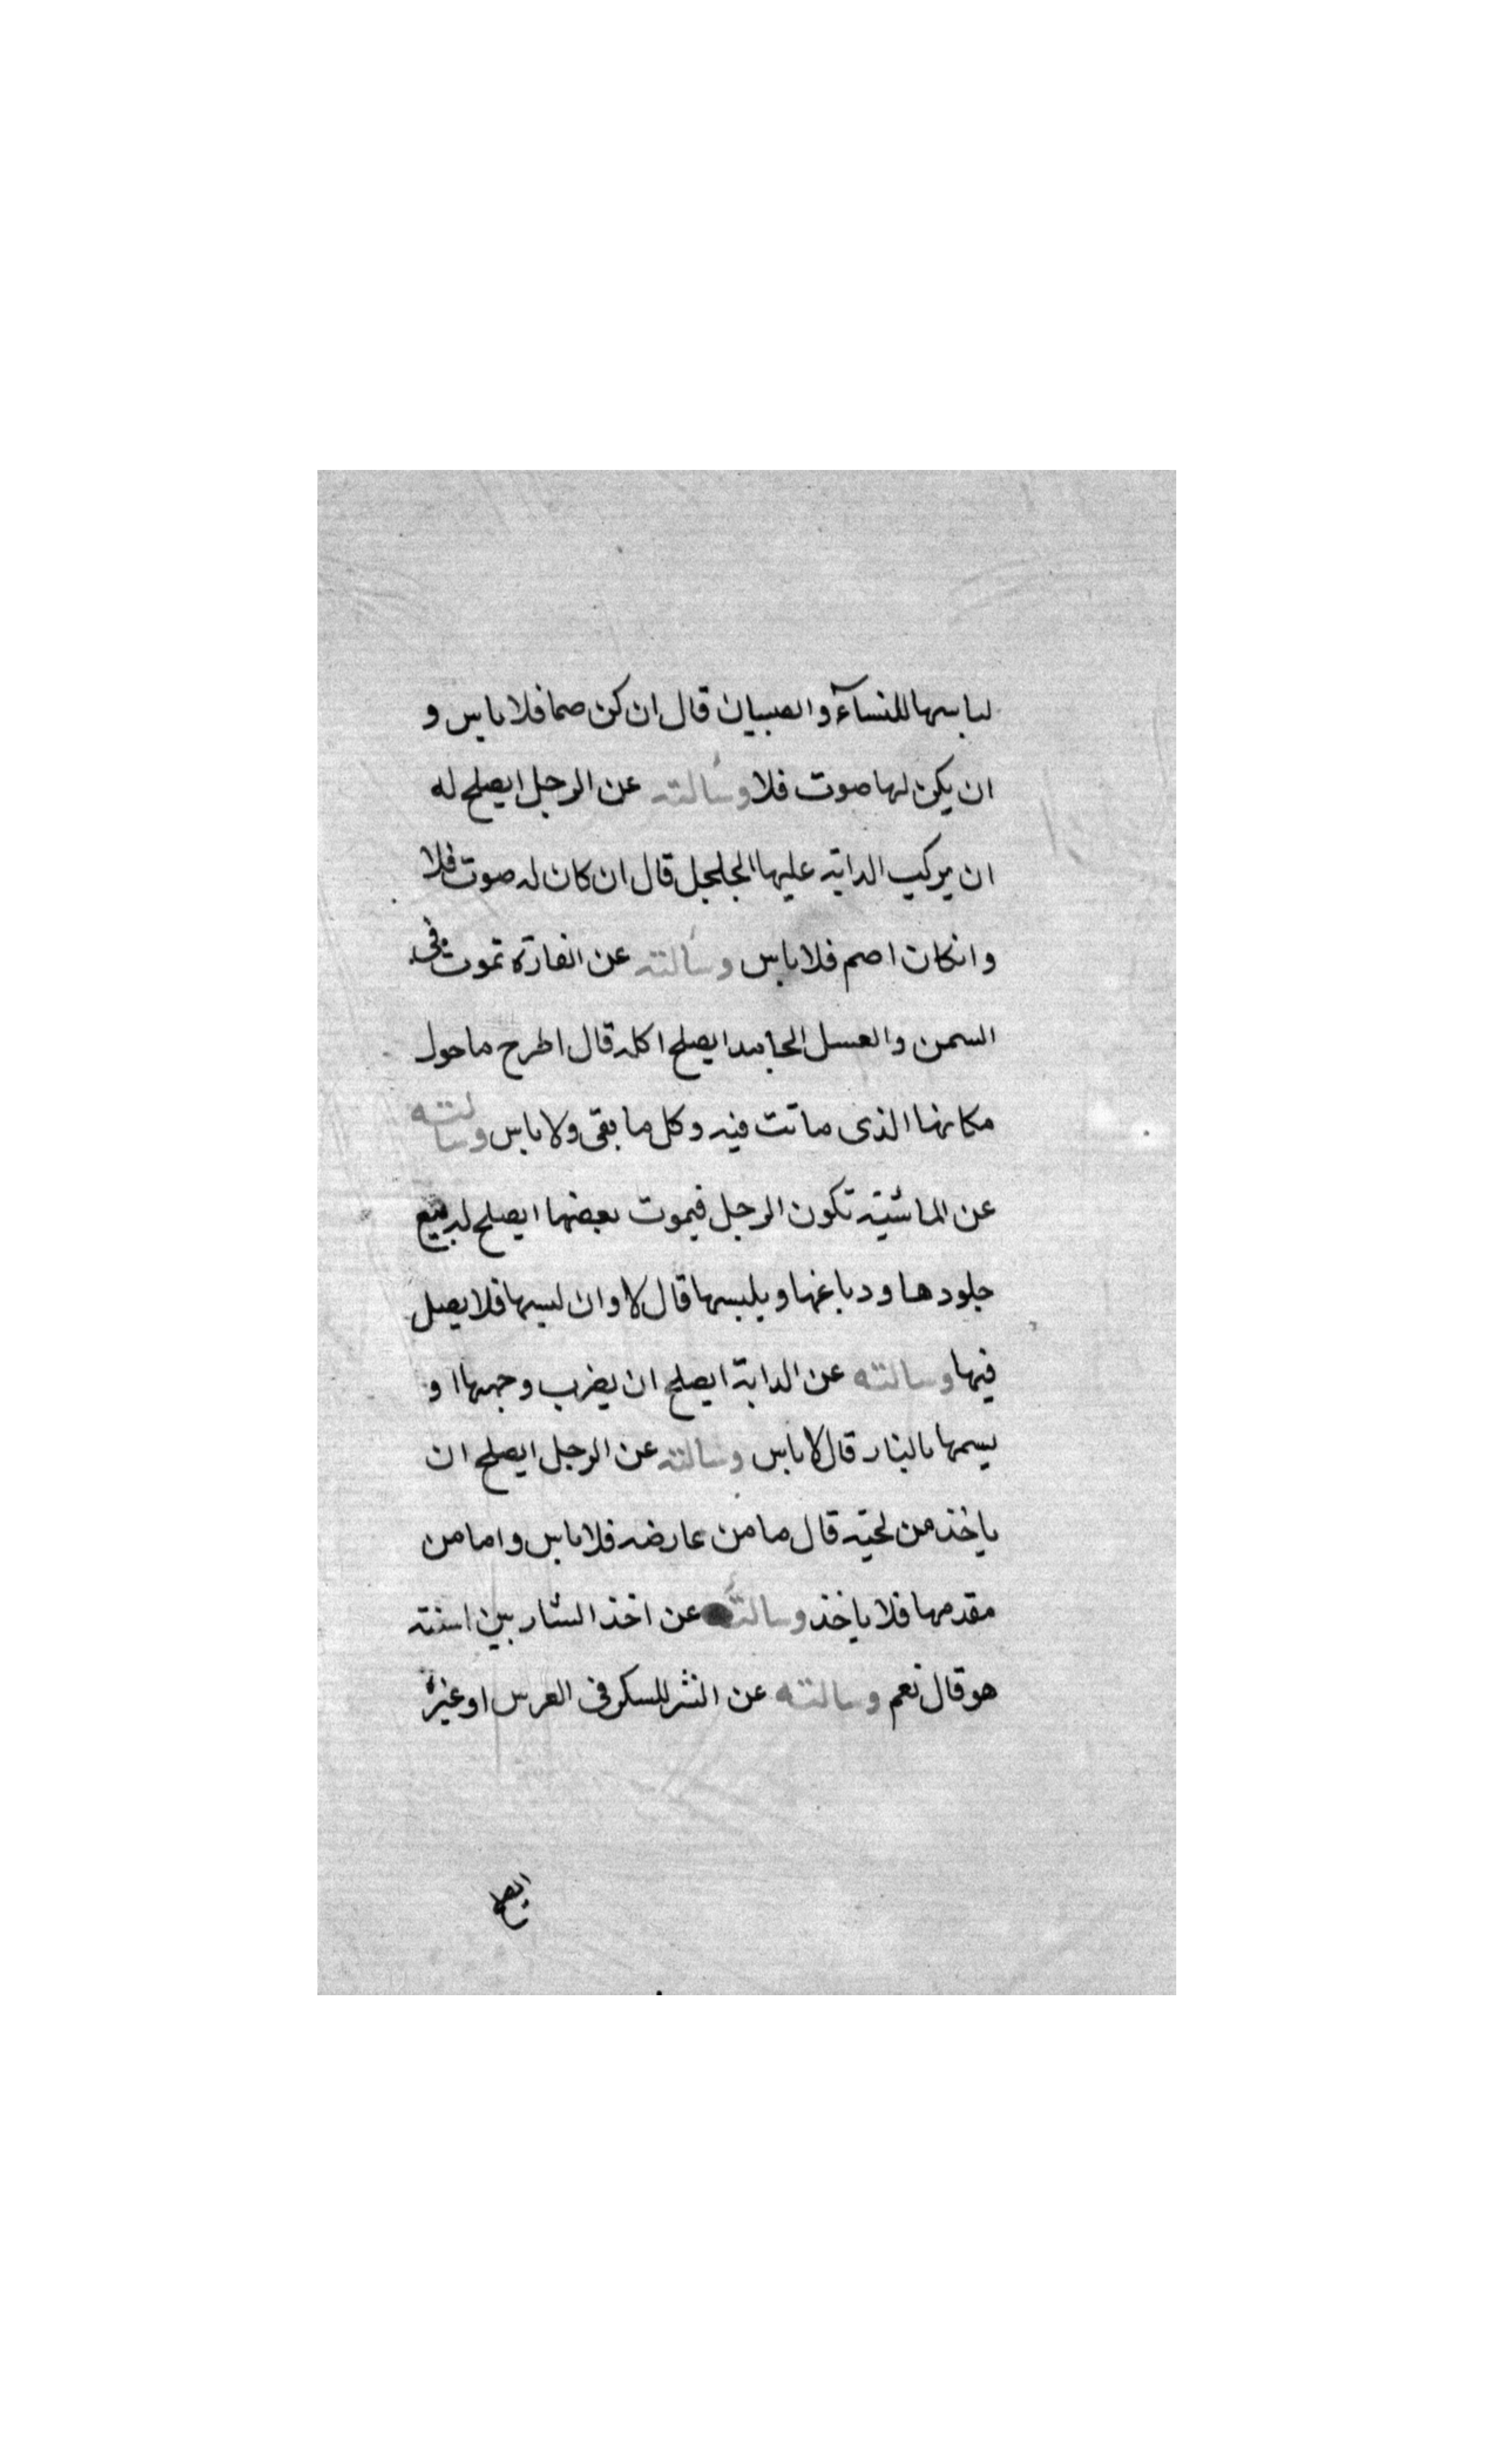 لباسها للنسآء والصبيان قال ان كن صما فلا باس و
ان يكن لها صوت فلا وسألته عن الرجل ايصلح له
ان يركب الدابة عليها الجلجل قال ان كان له صوت فلا
وانكان اصم فلا باس وسألته عن الفارة تموت في
السمن والعسل الجامد ايصلح اكله قال اطرح ماحول
مكانها الذى ماتت فيه وكل ما بقى ولا باس وسالته
عن الماشية تكون الرجل فيموت بعضها ايصلح له بيع
جلودها ودباغها ويلبسها قال لا وان لبسها فلا يصل
فيها وسالته عن الدابة ايصلح ان يضرب وجهها او
يسمها بالنار قال لا باس وسالته عن الرجل ايصلح ان
ياخذ من لحيته قال ما من عارضه فلا باس واما من
مقدمها فلا ياخذ وسألته عن اخذ الشاربين اسنته
هو قال نعم وسالته عن النثر للسكر في العرس او غيره
ايصلح